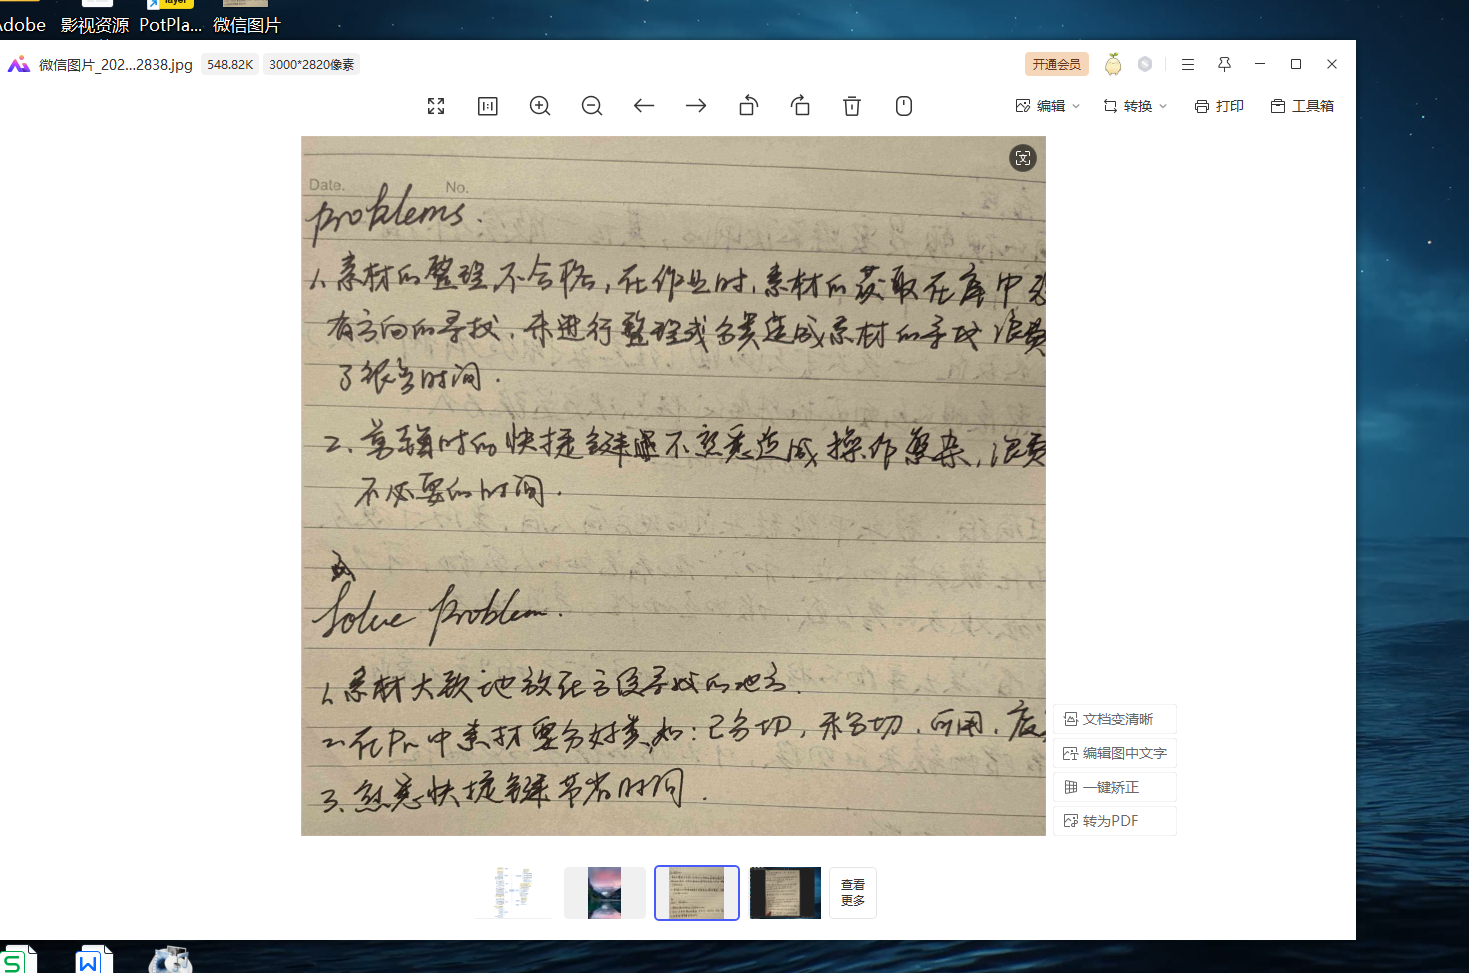 Adobe 影视资源 PotPla... 微信图片
微信图片_202...2838.jpg 548.82K 3000*2820像素 开通会员
编辑 转换 打印 工具箱
Date. No.
Problems.
1. 素材的整理不合格,在作业时,素材的获取在库中没
有方向的寻找,未进行整理或分类造成素材的寻找浪费
了很多时间.
2. 剪辑时的快捷键不熟悉造成操作复杂,浪费
不必要的时间.
Solve Problem.
1. 素材大致地放在方便寻找的地方.
2. 在Pr中素材要分好类,如:已分切,未分切,可用,废
3. 熟悉快捷键节省时间.
文档变清晰
编辑图中文字
一键矫正
转为PDF
查看
更多